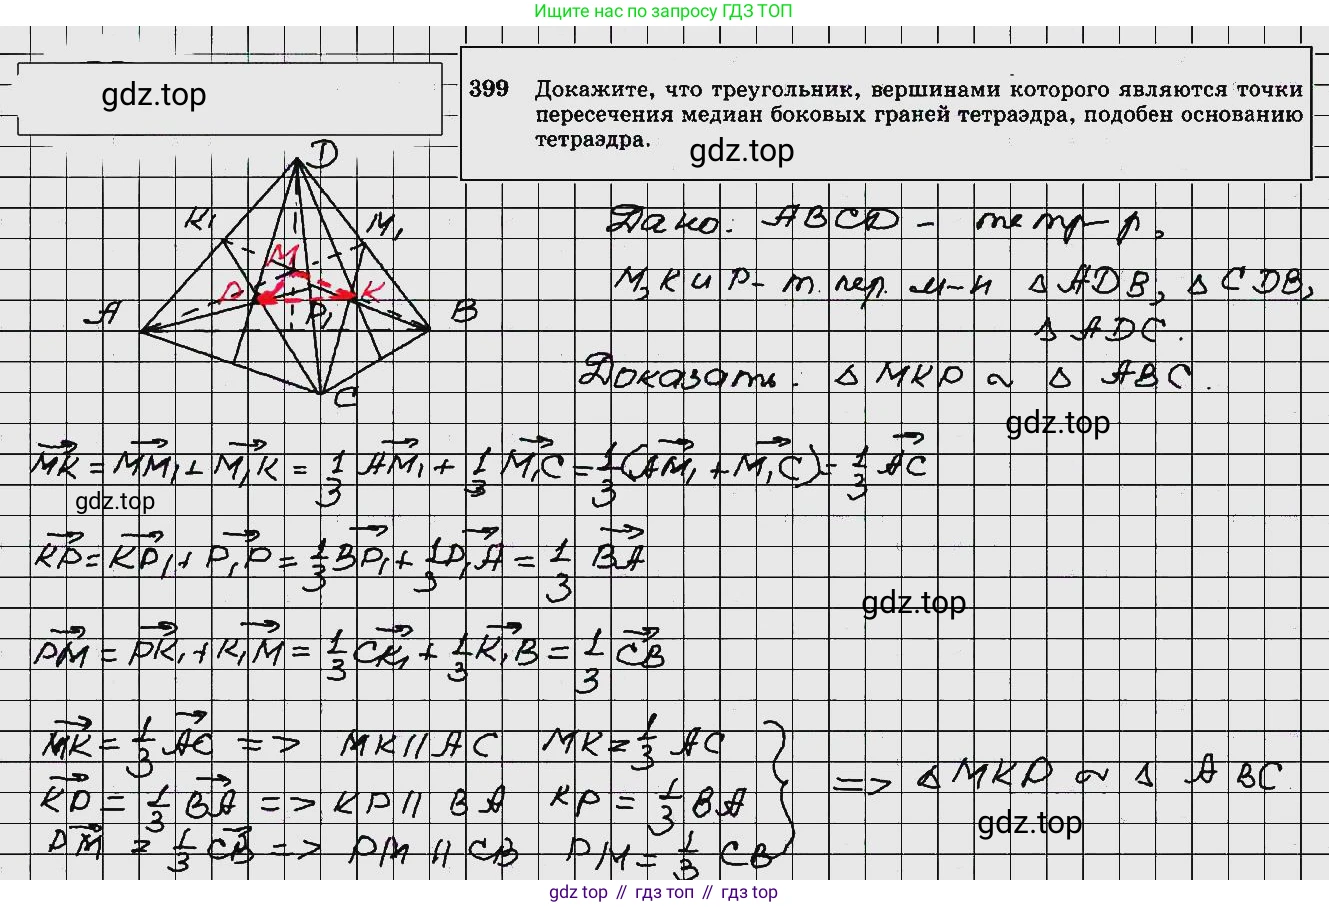 Ищите нас по запросу ГДЗ ТОП
gdz.top
399 Докажите, что треугольник, вершинами которого являются точки
пересечения медиан боковых граней тетраэдра, подобен основанию
тетраэдра.
gdz.top
D
K₁ M₁
M
P K
A P₁ B
C
Дано: ABCD - тетр-р,
M, K и P - т. пер. м-н △ADB, △CDB,
△ADC.
Доказать: △MKP ~ △ABC.
gdz.top
MK = MM₁ + M₁K = 1/3 AM₁ + 1/3 M₁C = 1/3 (AM₁ + M₁C) = 1/3 AC
gdz.top
KP = KP₁ + P₁P = 1/3 BP₁ + 1/3 P₁A = 1/3 BA
gdz.top
PM = PK₁ + K₁M = 1/3 CK₁ + 1/3 K₁B = 1/3 CB
MK = 1/3 AC => MK || AC MK = 1/3 AC
KP = 1/3 BA => KP || BA KP = 1/3 BA
PM = 1/3 CB => PM || CB PM = 1/3 CB
=> △MKP ~ △ABC
gdz.top
gdz top // гдз топ // gdz top